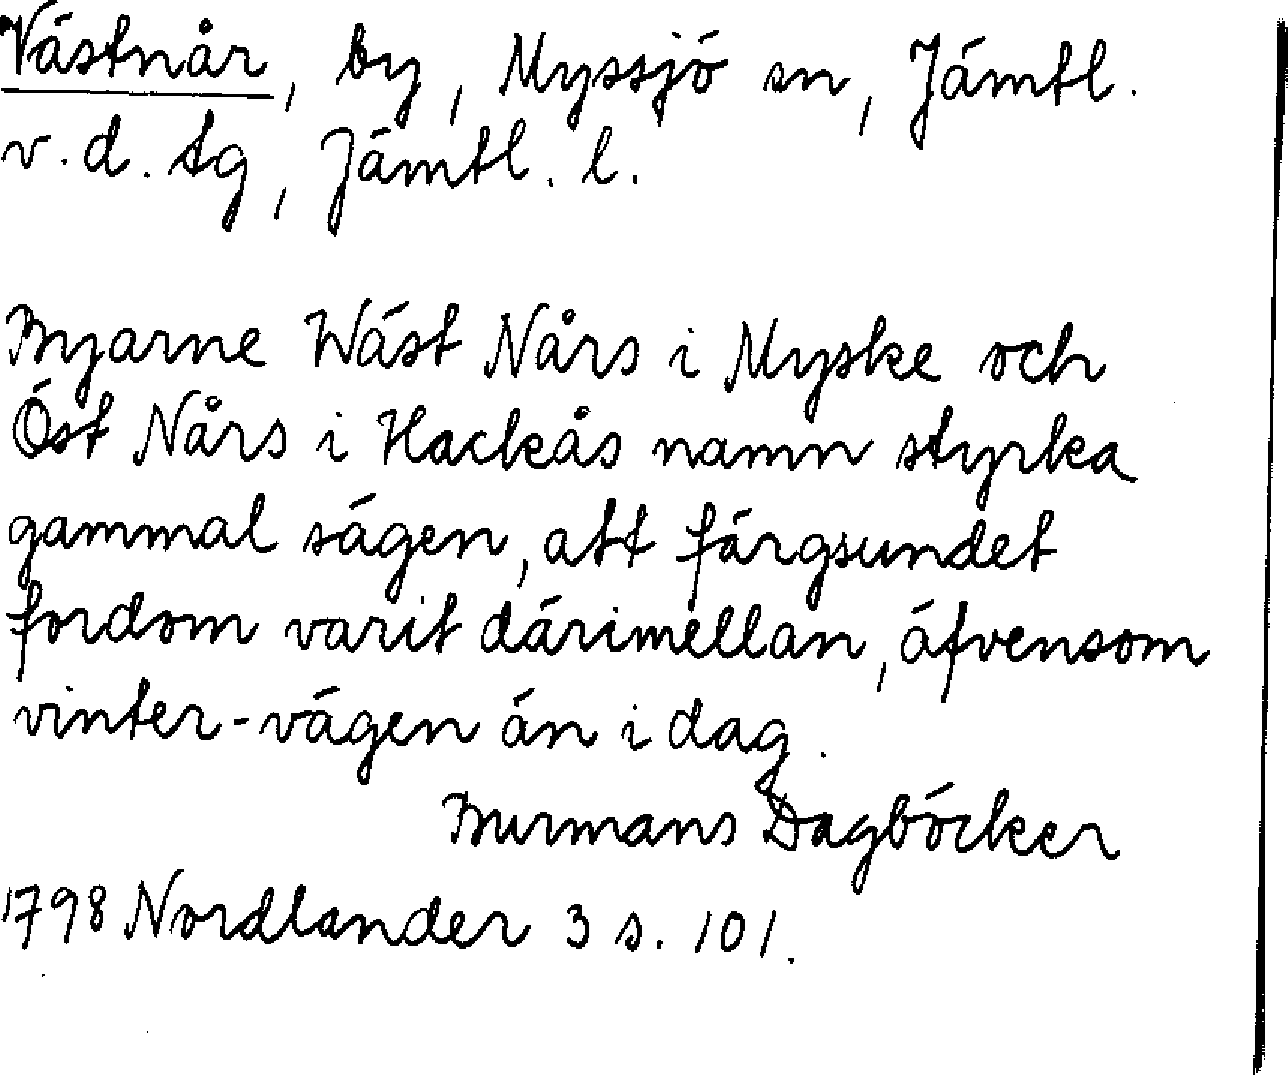 Västnår, by, Myssjö sn, Jämtl.
v.d. tg, Jämtl. l.
Byarne Wäst Nårs i Myske och
Öst Nårs i Hackås namn styrka
gammal sägen, att färgsundet
fordom varit därimellan, äfvensom
vinter-vägen än i dag.
Burmans Dagböcker
1798 Nordlander 3 s. 101.